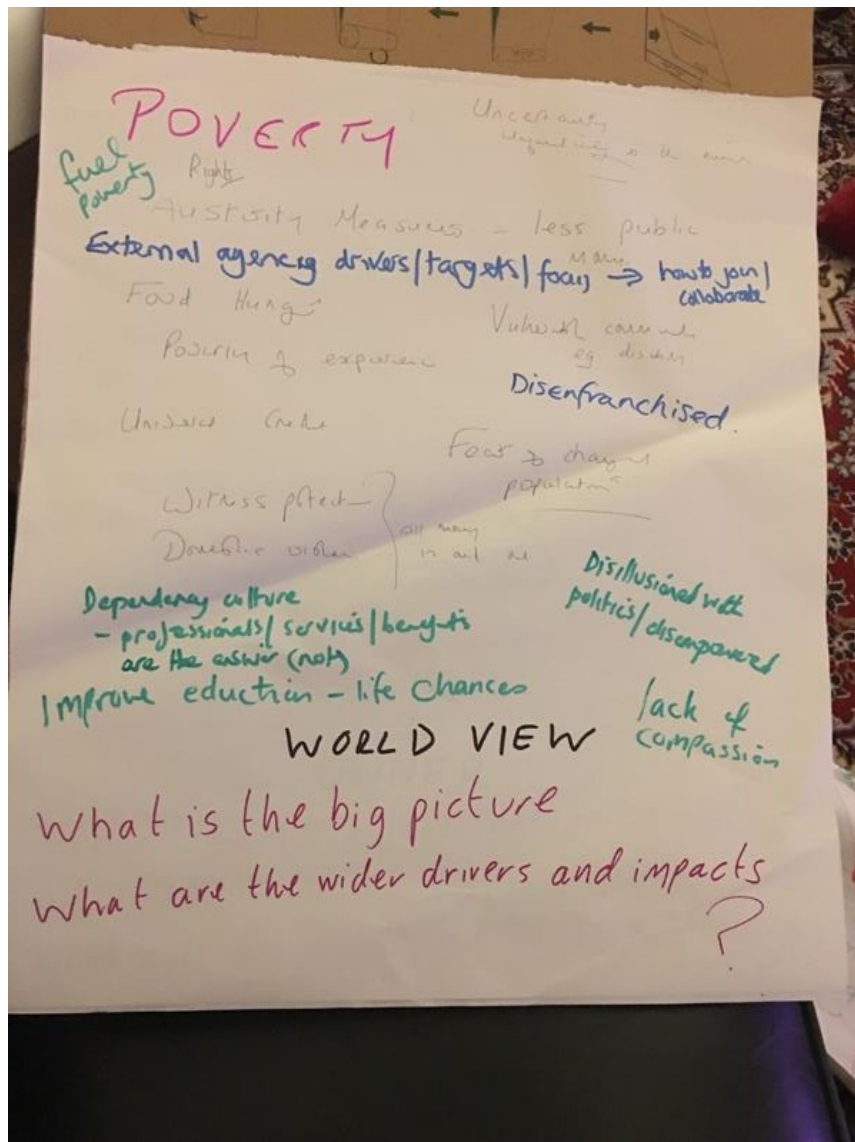 POVERTY
Uncertainty
to the
fuel
poverty
Rights
Austerity Measures - less public
External agency drivers/targets/focus → how to join/
collaborate
Many
Food Hung
Poverty of experience
eg
Disenfranchised.
Universal Credit
Fear of
population
Witness protect
Domestic violen
in and
Dependency culture
- professionals/services/benefits
are the answer (not)
Disillusioned with
politics/disempowered
Improve eduction - life chances
lack of
compassion
WORLD VIEW
What is the big picture
What are the wider drivers and impacts
?